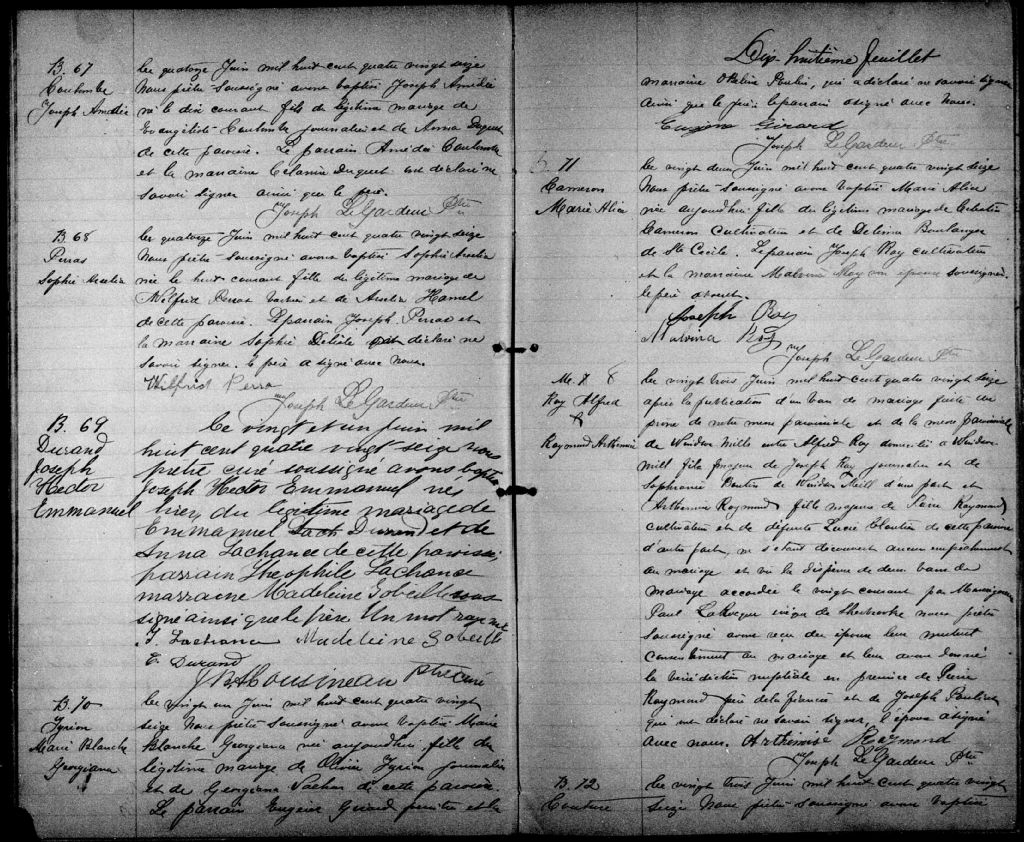 B. 67
Coulombe
Joseph Amédée
Le quatorze Juin mil huit cent quatre vingt seize
Nous prêtre soussigné avons baptisé Joseph Amédée
né le dix courant fils du légitime mariage de
Evangéliste Coulombe journalier et de Anna Duquet
de cette paroisse. Le parrain Amédée Coulombe
et la marraine Duquet ont déclaré ne
savoir signer ainsi que le père.
Joseph LeGardeur Ptre
B. 68
Peras
Sophie Amelia
Le quatorze Juin mil huit cent quatre vingt seize
Nous prêtre soussigné avons baptisé Sophie Amelia
née le huit courant fille du légitime mariage de
Wilfrid Perras et de Amelia Hamel
de cette paroisse. Le parrain Joseph Perras et
la marraine Sophie Delisle ont déclaré ne
savoir signer. le père a signé avec nous.
Wilfrid Perra
Joseph LeGardeur Ptre
B. 69
Durand
Joseph
Hector
Emmanuel
Le vingt et un Juin mil
huit cent quatre vingt seize nous
prêtre curé soussigné avons baptisé
Joseph Hector Emmanuel né
hier du légitime mariage de
Emmanuel Lach Durand et de
Anna Lachance de cette paroisse,
parrain Théophile Lachance
marraine Madeleine Gobeille sous
signé ainsi que le père Un mot rayé nul
T. Lachance Madeleine Gobeille
E. Durand
J B A Cousineau Ptre curé
B. 70
Tyrion
Marie Blanche
Georgiana
Le vingt un Juin mil huit cent quatre vingt
seize Nous prêtre soussigné avons baptisé Marie
Blanche Georgiana née aujourd'hui fille du
légitime mariage de Olivier Tyrion journalier
et de Georgiana Vachon de cette paroisse.
Le parrain Eugène Girard et la
Dix-huitième feuillet
marraine Poulin, qui a déclaré ne savoir signer
ainsi que le père. le parrain a signé avec nous.
Eugène Girard
Joseph LeGardeur Ptre
B 71
Cameron
Marie Alice
Le vingt deux Juin mil huit cent quatre vingt seize
Nous prêtre soussigné avons baptisé Marie Alice
née aujourd'hui fille du légitime mariage de Célestin
Cameron cultivateur et de Delvina Boulanger
de Ste Cécile. Le parrain Joseph Roy cultivateur
et la marraine Malvina Roy son épouse soussignés.
le père absent.
Joseph Roy
Malvina Roy
Joseph LeGardeur Ptre
M. 8
Roy Alfred
&
Raymond Arthémise
Le vingt trois Juin mil huit cent quatre vingt seize
après la publication d'un ban de mariage faite au
prône de notre messe paroissiale et de la messe paroissiale
de Windsor Mills entre Alfred Roy domicilié à Windsor
Mill fils majeur de Joseph Roy journalier et de
Sophronie de Windsor Mill d'une part et
Arthémise Raymond fille majeure de Pierre Raymond
cultivateur et de défunte Lucie Cloutier de cette paroisse
d'autre part, ne s'étant découvert aucun empêchement
au mariage et vu la dispense de deux bans de
mariage accordée le vingt courant par Monseigneur
Paul LaRocque évêque de Sherbrooke nous prêtre
soussigné avons reçu des époux leur mutuel
consentement au mariage et leur avons donné
la bénédiction nuptiale en présence de Pierre
Raymond père de la fiancée et de Joseph
qui ont déclaré ne savoir signer, l'épouse a signé
avec nous. Arthemise Raymond
Joseph LeGardeur Ptre
B. 72
Couture
Le vingt trois Juin mil huit cent quatre vingt
seize Nous prêtre soussigné avons baptisé